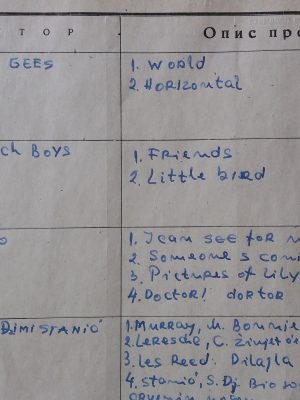 Т О Р Опис про
GEES 1. World
2. Horizontal
ch Boys 1. Friends
2. Little bird
1. I can see for
2. Someone s comi
3. Pictures of Lily
4. Doctor! doctor
Džmi Stanić 1. Murray, M. Bonnie
2. Leresche, C.
3. Les Reed: Dilajla
4. Stanić, S. Dj. Bio sa
crvenim